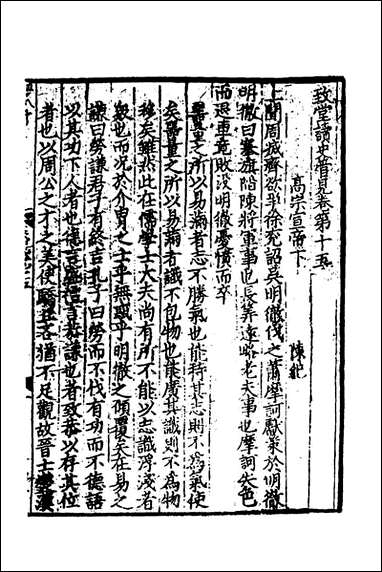 致堂讀史管見卷第十五
高宗宣帝下　陳紀
上聞周滅齊欲爭徐兗詔吳明徹伐之蕭摩訶獻策於明徹
明徹曰搴旗陷陳將軍事也長筭遠略老夫事也摩訶失色
而退進竟敗没明徹憂憤而卒
器量之所以易滿者志不勝氣也能持其志則不爲氣使
矣器量之所以易滿者識不包物也能廣其識則不爲物
移矣雖然此在儒學士大夫尚有所不能以志識浮淺者
衆也而况於介胄之士乎無取乎明徹之傾覆矣在易之
謙曰勞謙君子有終吉孔子曰勞而不伐有功而不德語
以其功下人者也德言盛禮言恭謙也者致恭以存其位
者也以周公之才之美使驕且吝猶不足觀故晉士燮漢